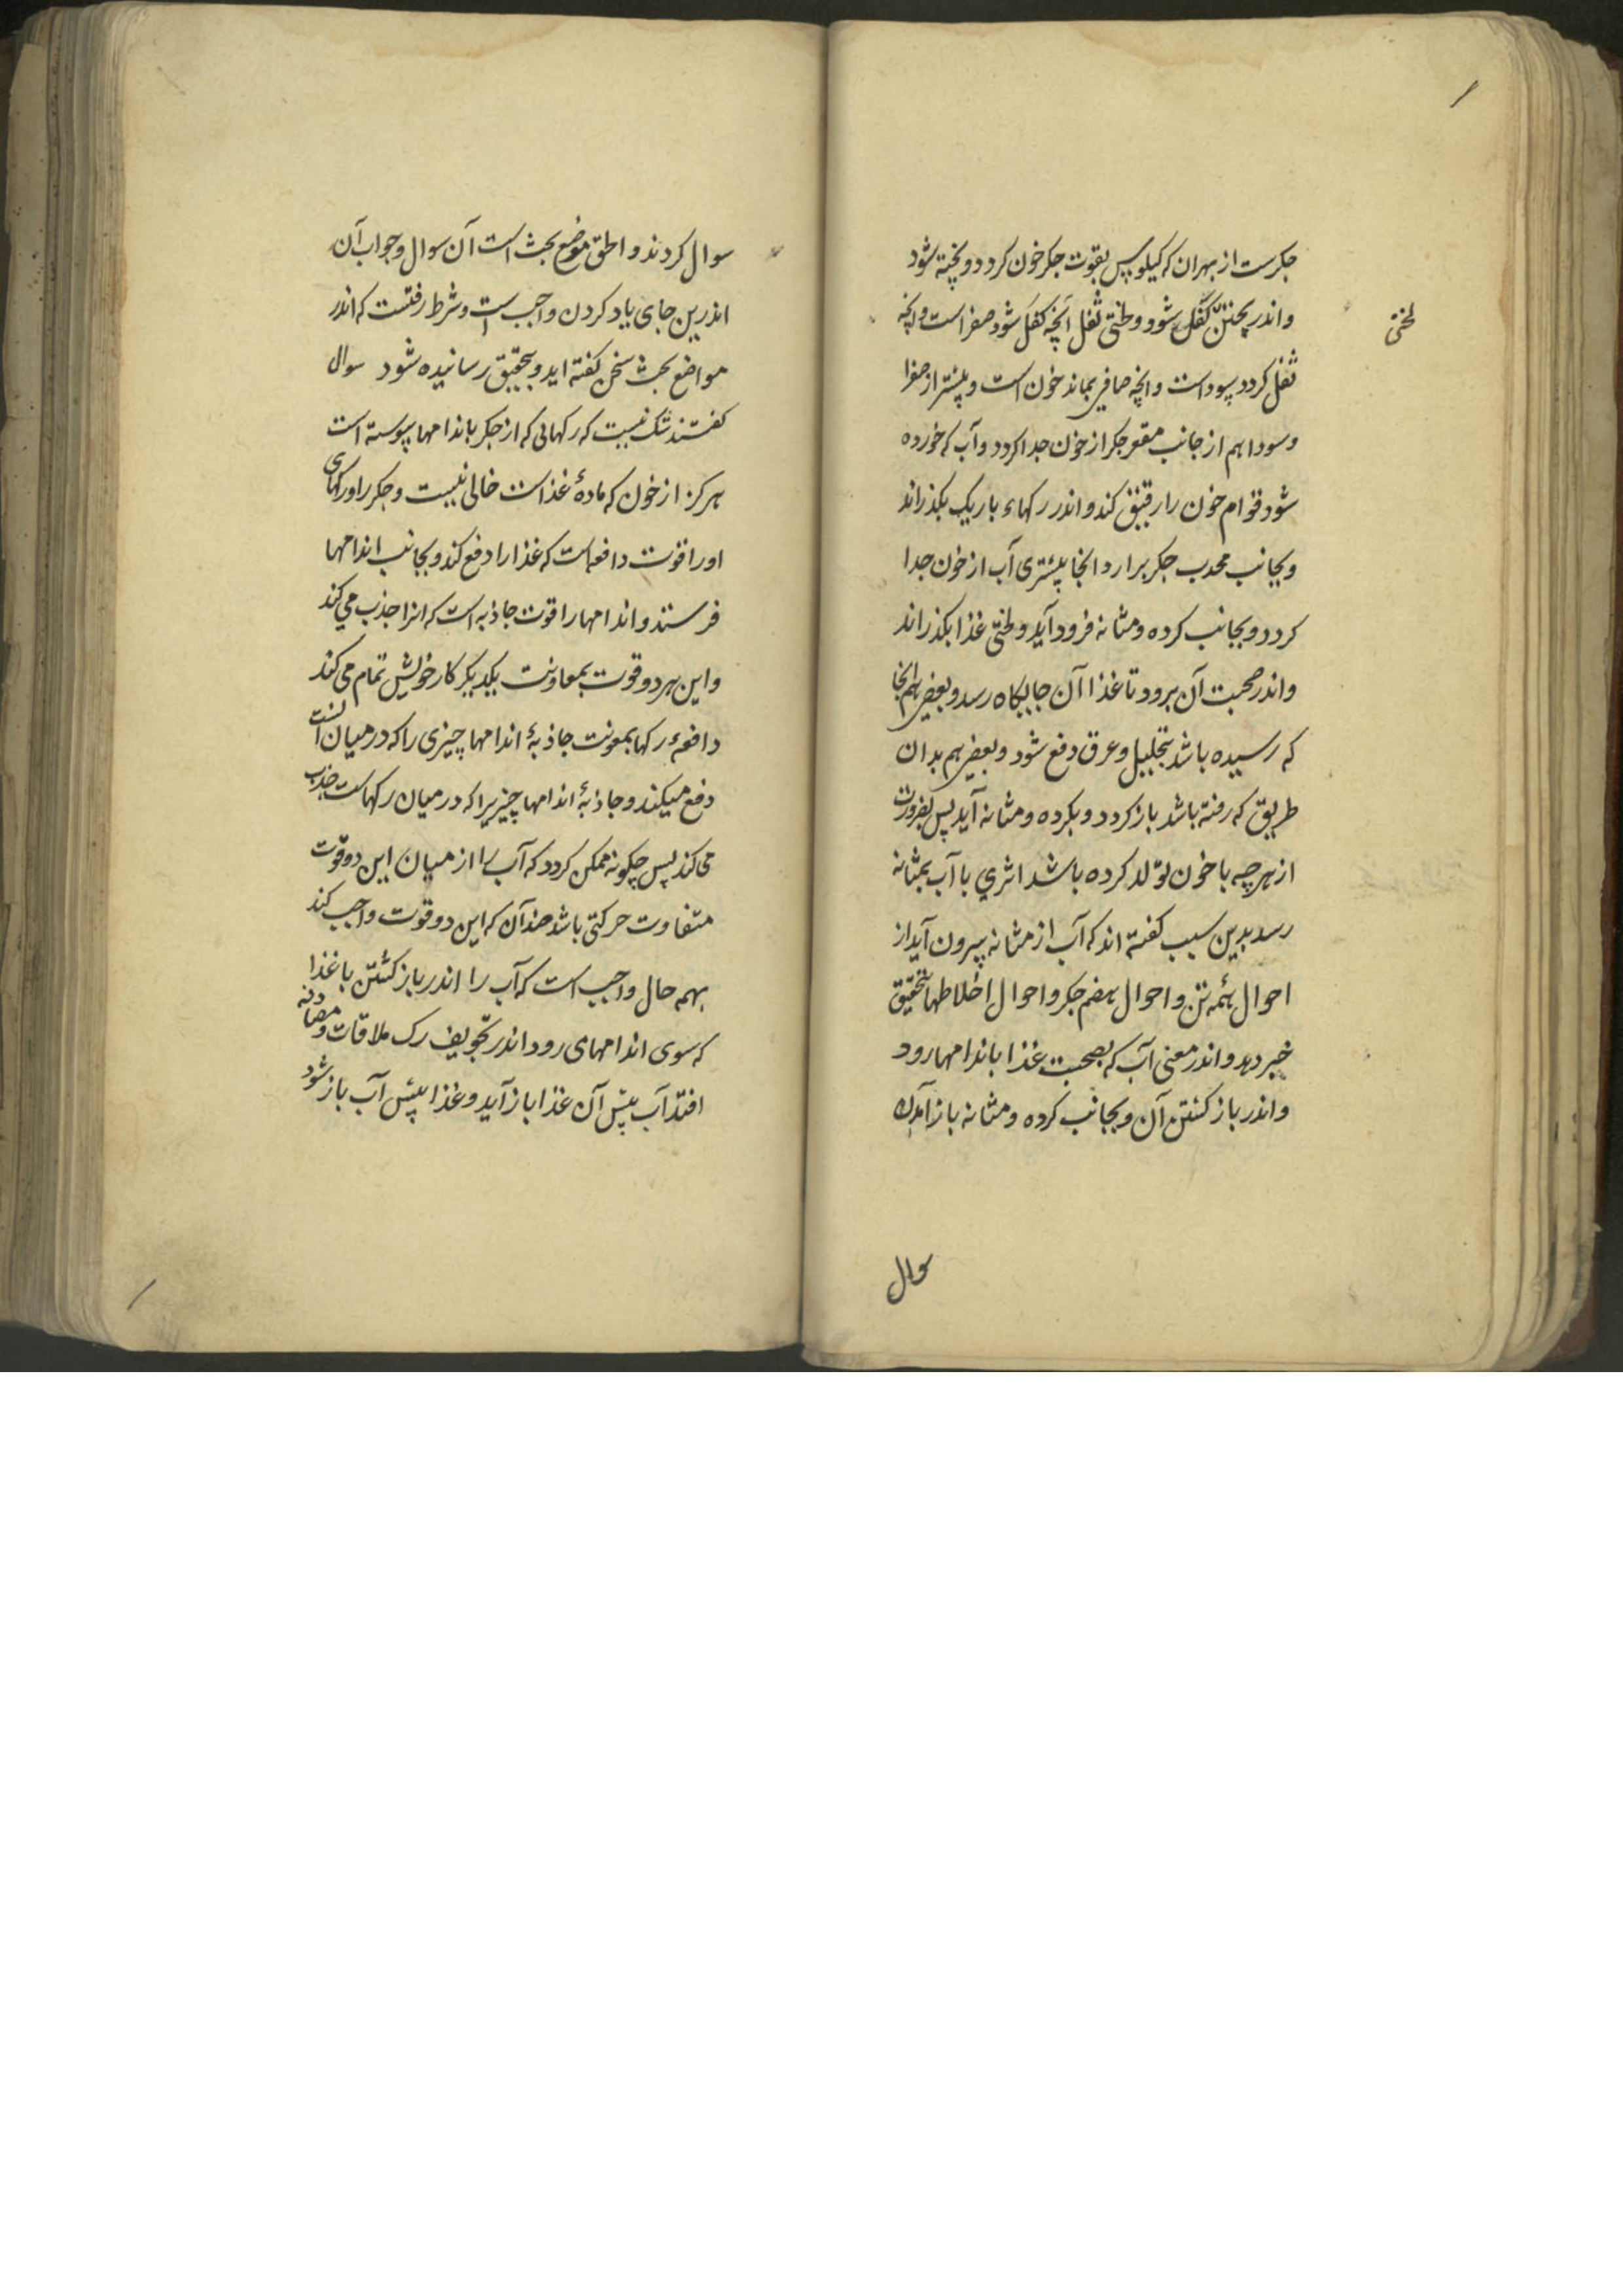 جکرست از بهران که کیلوس بقوت جکر خون کردد و پخته شود
و اندر پختن کفک شود و لختی ثفل آنچه کفک شود صفر است و آنچه
لختی
ثفل کردد سوداست و آنچه صافی بماند خون است و بیشتر از صفرا
و سودا هم از جانب مقعر جکر از خون جدا کردد و آب که خورده
شود قوام خون را رقیق کند و اندر رکهاء باریک بکذراند
و بجانب محدب جکر برارد و انجا بیشتری آب از خون جدا
کردد و بجانب کرده و مثانه فرود آید و لختی غذا بکذراند
و اندر صحبت آن برود تا غذا آن جایکاه رسد و بعضی هم انجا
که رسیده باشد بتحلیل و عرق دفع شود و بعضی هم بدان
طریق که رفته باشد باز کردد و بکرده و مثانه آید پس بضرورت
از هرچه با خون تولد کرده باشد اثری با آب بمثانه
رسد بدین سبب کفته اند که آب از مثانه بیرون آید از
احوال همه تن و احوال هضم جکر و احوال اخلاطها بتحقیق
خبر دهد و اندر معنی آب که بصحبت غذا باندامها رود
و اندر باز کشتن آن و بجانب کرده و مثانه باز آمدن
سوال
سوال کردند و الحق موضع بحث است آن سوال و جواب آن
اندرین جای یاد کردن واجب است و شرط رفتست که اندر
مواضع بحث سخن کفته اید و بتحقیق رسانیده شود سوال
کفتند شک نیست که رکهایی که از جکر باندامها پیوسته است
هرکز از خون که مادهٔ غذاست خالی نیست و جکر را و رکهای
او را قوت دافعه است که غذا را دفع کند و بجانب اندامها
فرستد و اندامها را قوت جاذبه است که انرا جذب می کند
و این هر دو قوت بمعاونت یکدیکر کار خویش تمام می کند
دافعهٔ رکها بمعونت جاذبهٔ اندامها چیزی را که در میان آنست
دفع میکند و جاذبهٔ اندامها چیزیرا که در میان رکهاست جذب
می کند پس چکونه ممکن کردد که آب را از میان این دو قوت
متفاوت حرکتی باشد ضد آن که این دو قوت واجب کند
بهمه حال واجب است که آب را اندر باز کشتن با غذا
که سوی اندامهای رود اندر تجویف رک ملاقات و مصادفه
افتد آب پیش آن غذا باز آید و غذا پیش آب باز شود